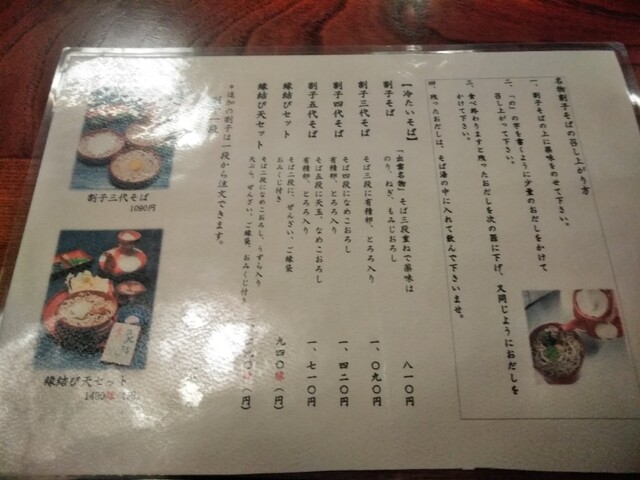 名物割子そばの召し上がり方
一、割子そばの上に薬味をのせて下さい。
二、「の」の字を書くように少量のおだしをかけて
召し上がって下さい。
三、食べ終わりますと残ったおだしを次の器に下げ、又同じようにおだしを
かけて下さい。
四、残ったおだしは、そば湯の中に入れて飲んで下さいませ。
【冷たいそば】
割子そば
「出雲名物」そば三段重ねで薬味は
のり、ねぎ、もみじおろし
八一〇円
割子三代そば
そば三段に有精卵、とろろ入り
一、〇九〇円
割子四代そば
そば四段になめこおろし
有精卵、とろろ入り
一、四二〇円
割子五代そば
そば五段に天玉、なめこおろし
有精卵、とろろ入り
一、七一〇円
縁結びそばセット
そば二段に、ぜんざい、ご縁袋
おみくじ付き
九四〇縁(円)
縁結び天セット
そば二段になめこおろし、うずら入り
天ぷら、ぜんざい、ご縁袋、おみくじ付き
(円)
*追加の割子は一段から注文できます。
一段
割子三代そば
1090円
縁結び天セット